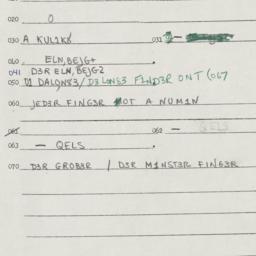 020 O
030 A KUL1K8 031 —
060 ELN, BEJG+ .
041 D3R ELN, BEJG2
050 DALQNS3/ D3LQNS3 F1ND3R ONT (067
060 JED3R FING3R NOT A NUM1N
065 062 — QELS
063 — QELS .
070 D3R GROB3R / D3R M1NST3R F1NG3R